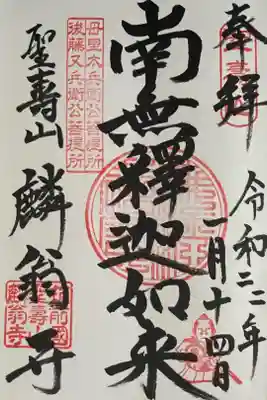 奉拝
令和二年
一月十四日
南無釋迦如来
母里太兵衛公菩提所
後藤又兵衛公菩提所
聖壽山
麟翁寺